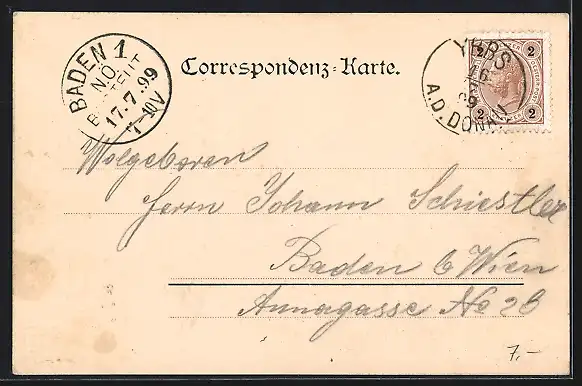 BADEN 1
N.Ö.
BESTELLT
17.7.99
7-10V
Correspondenz-Karte.
YBBS
16
99
A.D. DONAU
2 2
2 2
Wolgeboren
Herrn Johann Schiestler
Baden b/Wien
Annagasse No 26
7,-